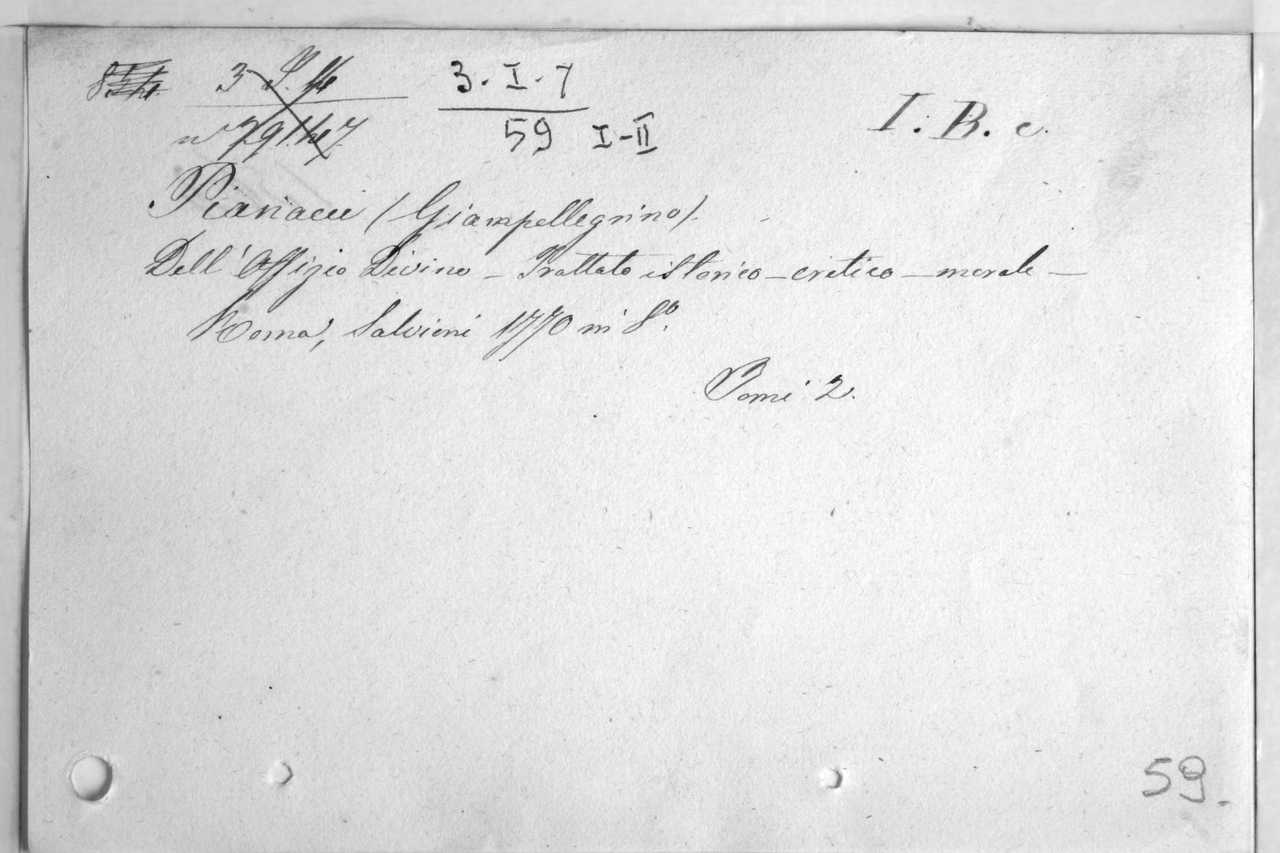 3. I. 7
59 I-II
I. B. c.
Pianacci (Giampellegrino).
Dell' Offizio Divino - Trattato istorico - critico - morale -
Roma, Salvioni 1770 in 8º.
Tomi 2.
59.